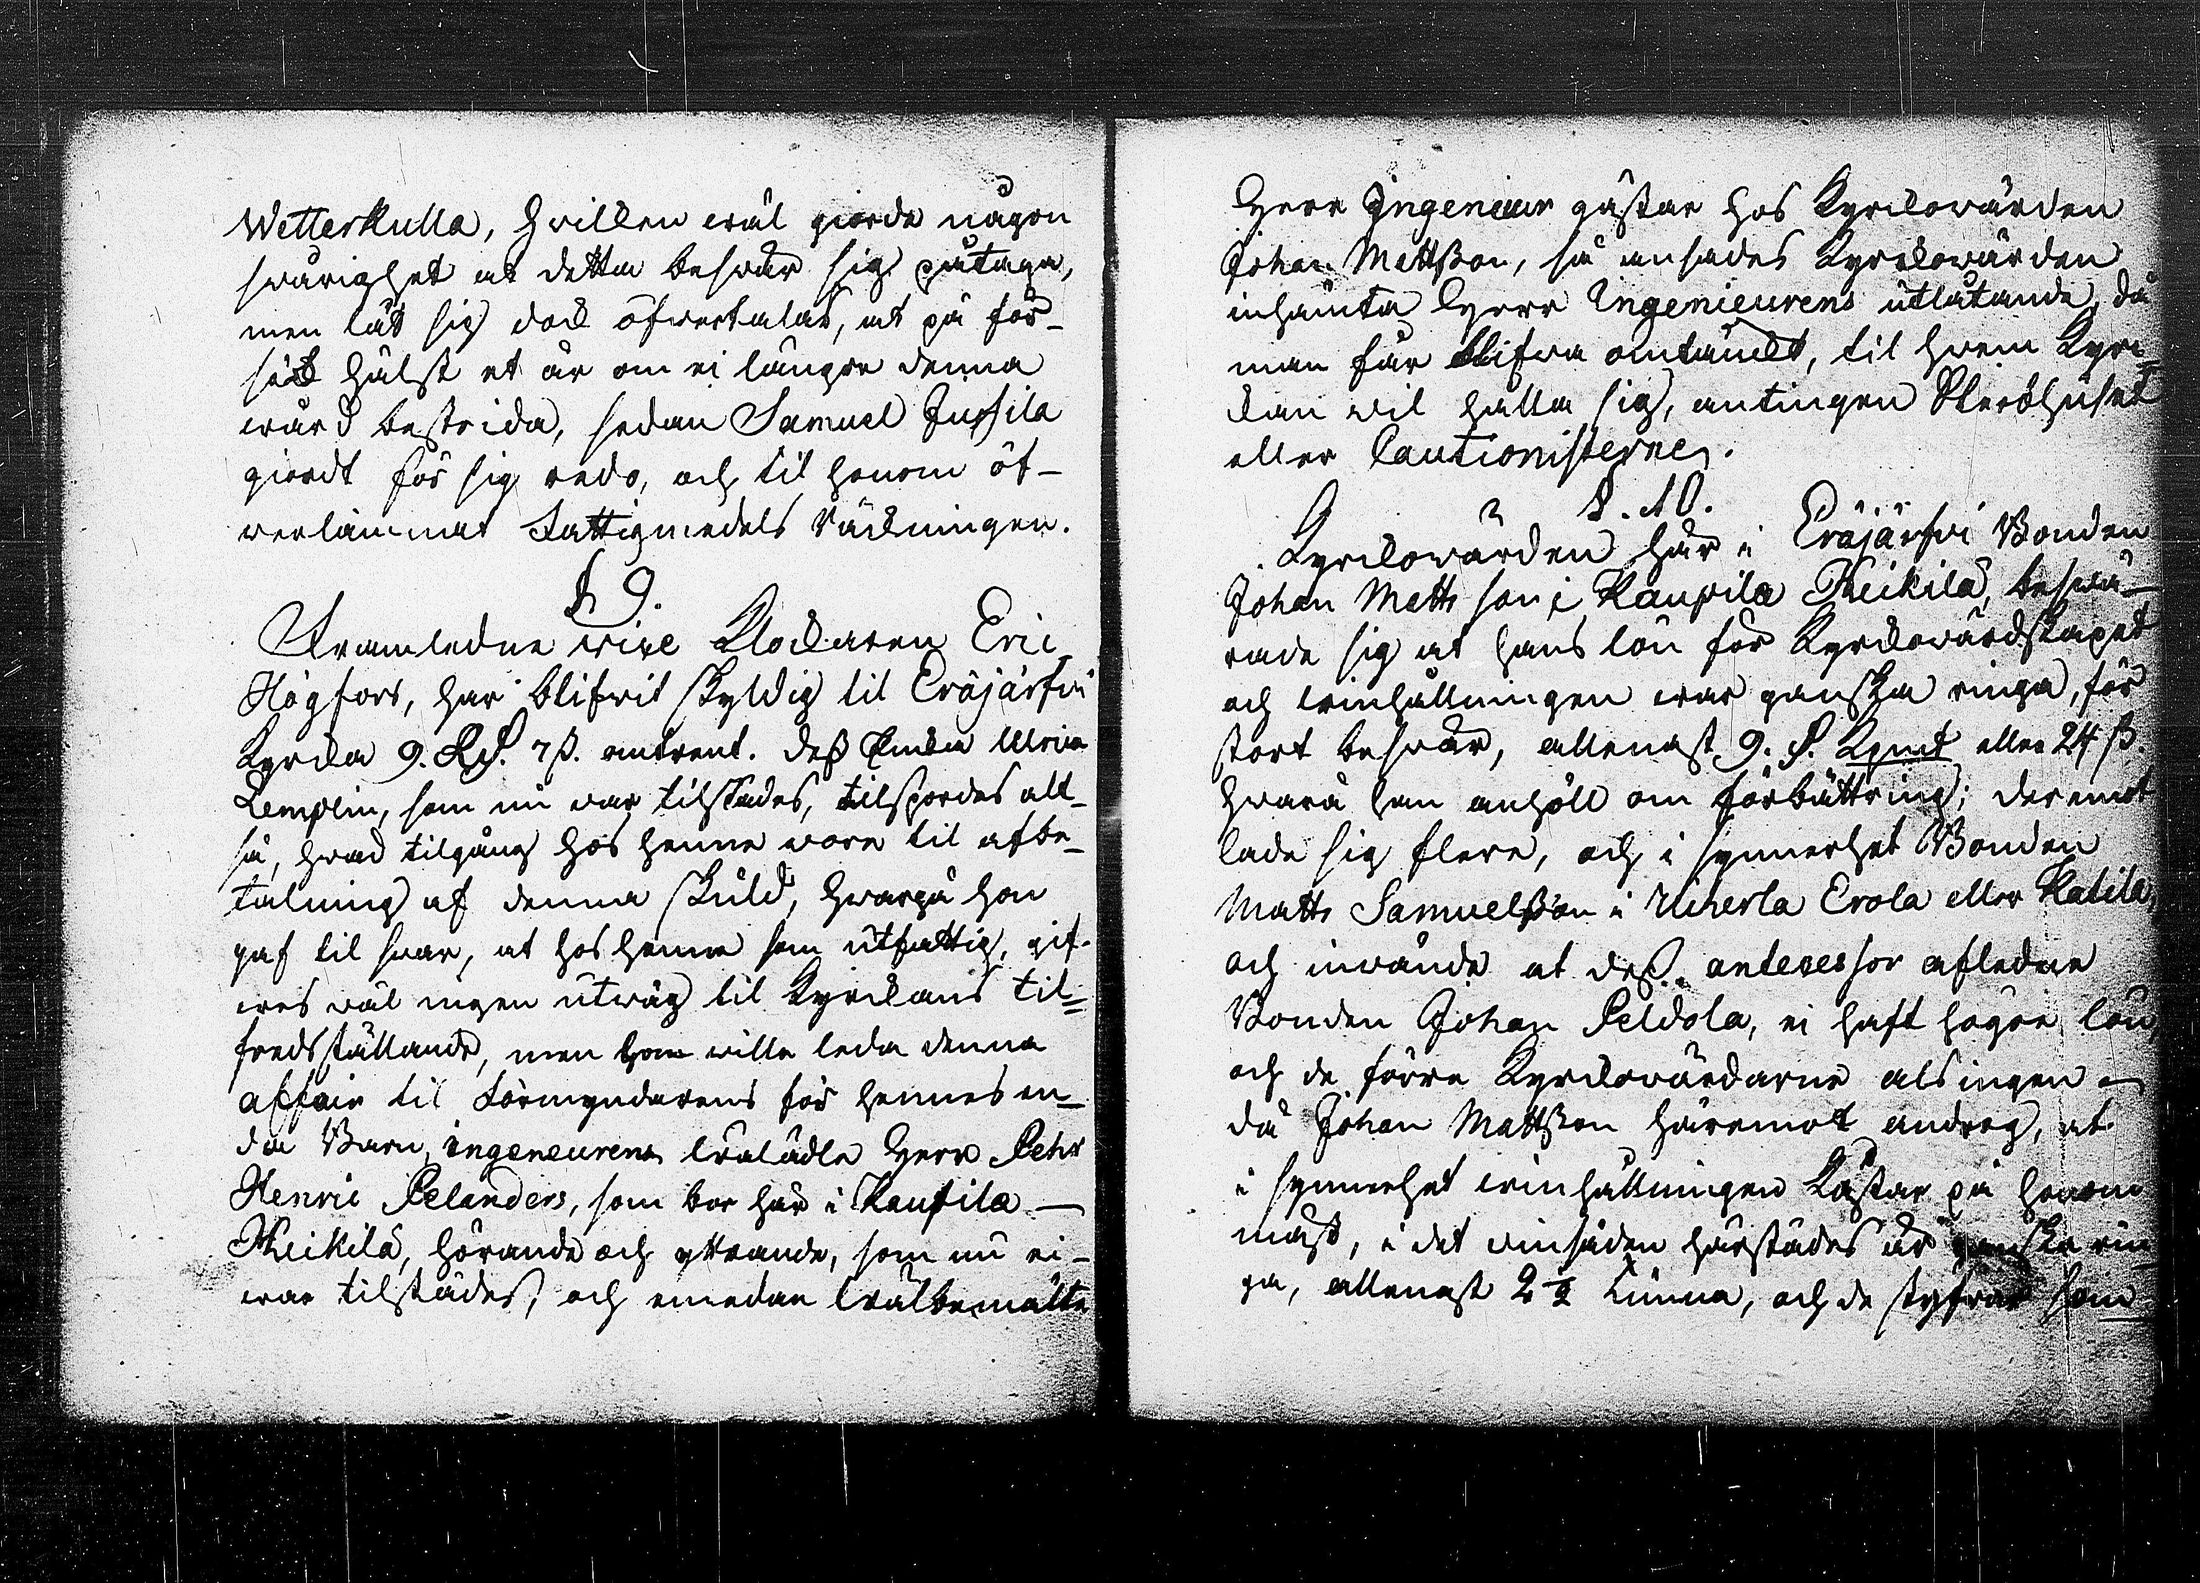 Wetterkulla, hvilken wäl giorde någon
swårighet at detta beswär sig påtaga,
men lät sig dock öfwertalas, at på för-
sök hälst et år om ei längre denna
wård bestrida, sedan Samuel Jussila
giordt för sig redo, och til honom öf-
werlämnat Fattigmedels Räckningen.
§ 9.
Framledne vice Klockaren Eric
Högfors, har blifwit skyldig til Eräjärfwi
Kyrcka 9. Rd. 7 ß. omtrent. Dess Encka Ulrica
Templin, som nu war tilstädes, tilspordes alt-
så, hwad tilgång hos henne wore til afbe-
talning af denna skuld, hwarpå hon
gaf til swar, at hos henne som utfattig, gif-
wes wäl ingen utwäg til Kyrckans til-
fredsställande, men hon wille leda denna
affair til Förmyndarens för hennes en-
da Barn, ingeneurens Wälädle Herr Pehr
Henric Pelanders, som bor här i Kaupila
Heikilä, hörande och yttrande, som nu ei-
war tilstädes, och emedan Wälbemälte
Herr Ingenieur gästar hos Kyrckowärden
Johan Mattsson, så ansades Kyrckowärden
inhämta Herr Ingenieurens utlåtande, då
man får blifwa omtänckt, til hwem Kyrc-
kan wil hålla sig, antingen Sterbhuset
eller Cautionisterne.
§. 10.
Kyrckowärden här i Eräjärfwi Bonden
Johan Matts son i Kaupila Heikilä, beswä-
rade sig at hans lön för Kyrckowärdskapet
och winhållningen war ganska ringa, för
stort beswär, allenast 9. d. Kpmt eller 24 ß.
hwarå han anhöll om förbättring; deremot
lade sig flere, och i synnerhet Bonden
Matts Samuelsson i Uiherla Erola eller Katila,
och inwände at dess antecessor afledne
Bonden Johan Peldola, ei haft högre lön
och de förre Kyrckowärdarne als ingen
då Johan Mattsson häremot androg, at
i synnerhet winhållningen kåstar på honom
mäst, i det winsäden härstädes är ganska rin-
ga, allenast 2 ½ Tunna, och de styfrar som